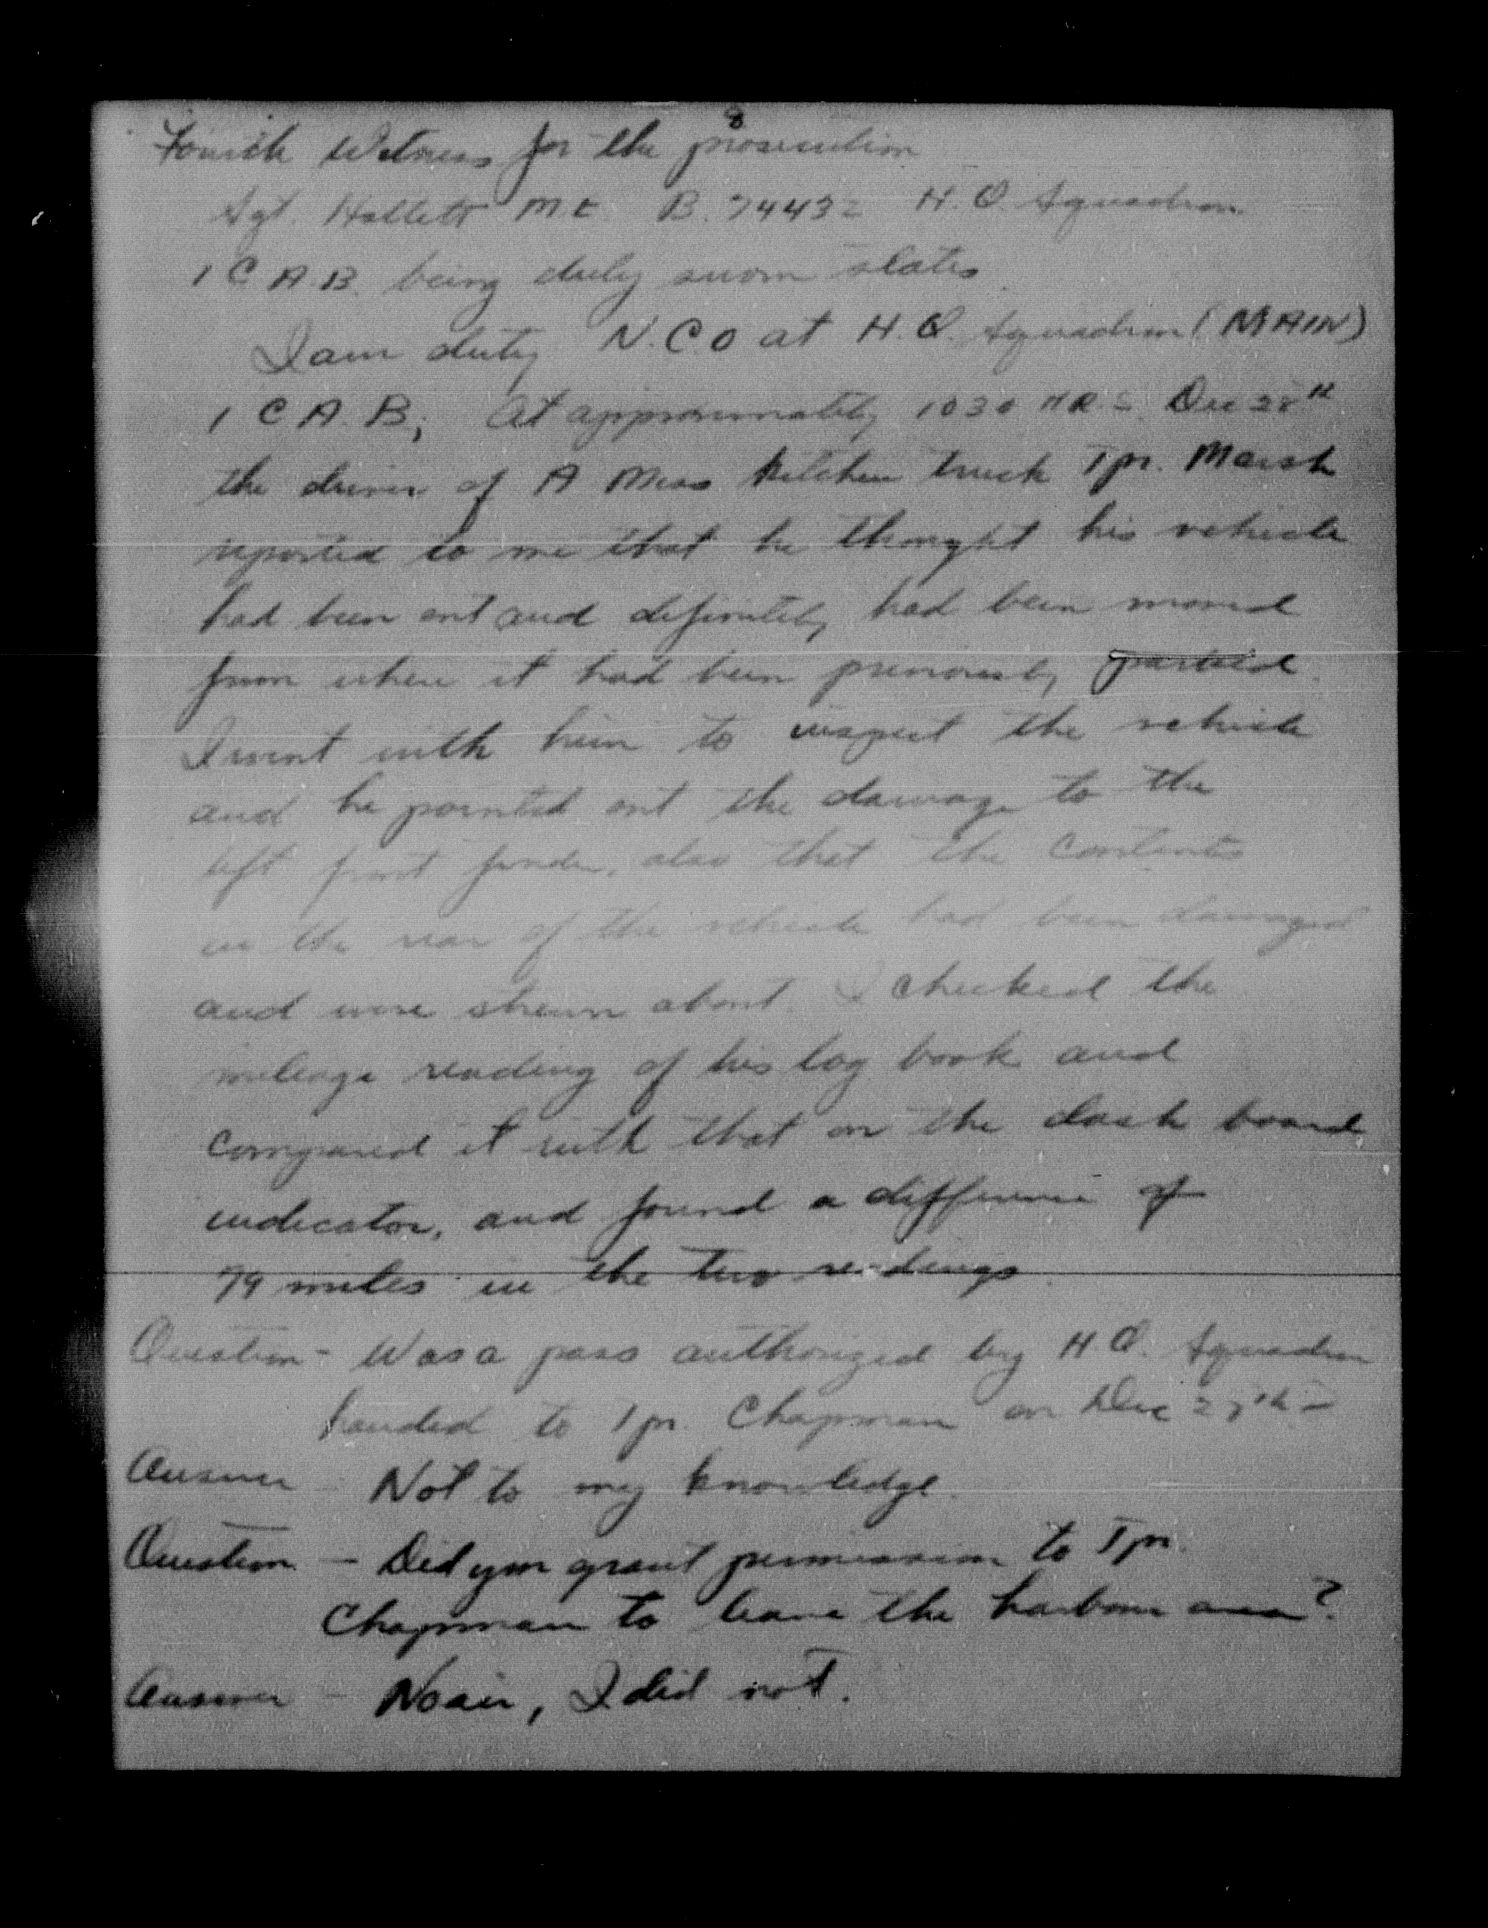 8
Fourth Witness for the prosecution
Sgt. Hallett M.E. B.74432 H.Q. Squadron
1 C.A.B. being duly sworn states
I am duty N.C.O at H.Q. Squadron (MAIN)
1 C.A.B; At approximately 1030 HRS Dec 28th
the driver of A Mess kitchen truck Tpr. Marsh
reported to me that he thought his vehicle
had been out and definitely had been moved
from where it had been previously parked.
I went with him to inspect the vehicle
and he pointed out the damage to the
left front fender, also that the contents
in the rear of the vehicle had been damaged
and were strewn about. I checked the
mileage reading of his log book and
compared it with that on the dash board
indicator, and found a difference of
79 miles in the two readings.
Question - Was a pass authorized by H.Q. Squadron
handed to Tpr. Chapman on Dec 27th -
Answer - Not to my knowledge.
Question - Did you grant permission to Tpr.
Chapman to leave the harbour area?
Answer - No sir, I did not.